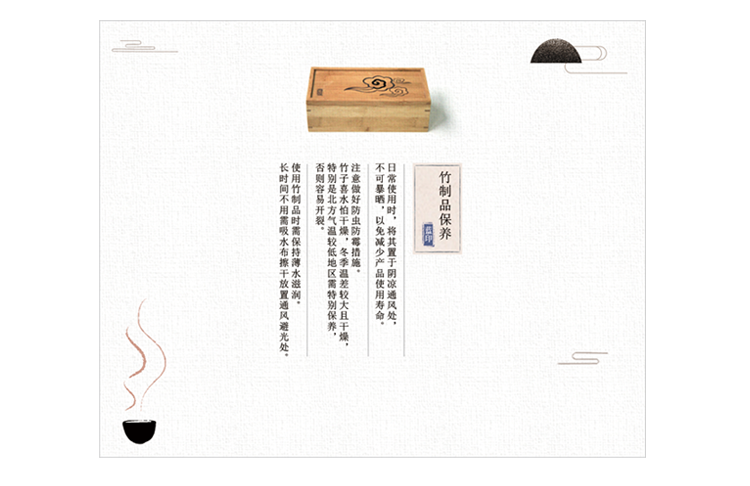 竹制品保养
蓝印
日常使用时，将其置于阴凉通风处，
不可暴晒，以免减少产品使用寿命。
注意做好防虫防霉措施。
竹子喜水怕干燥，冬季温差较大且干燥，
特别是北方气温较低地区需特别保养，
否则容易开裂。
使用竹制品时需保持薄水滋润。
长时间不用需吸水布擦干放置通风避光处。